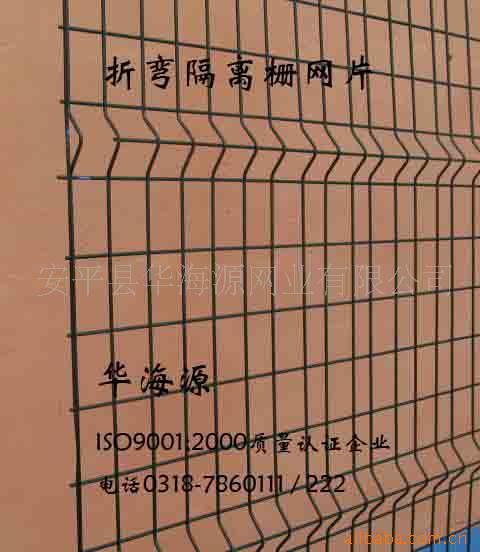 折弯隔离栅网片
安平县华海源网业有限公司
华海源
ISO9001:2000质量认证企业
电话0318-7860111 / 222
alibaba.com.cn